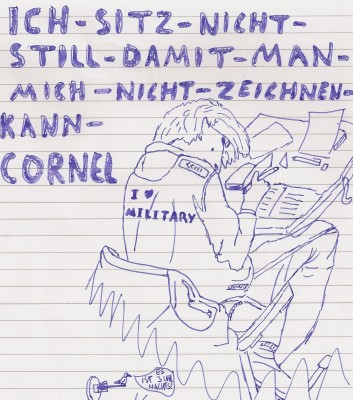 ICH-SITZ-NICHT-
STILL-DAMIT-MAN-
MICH-NICHT-ZEICHNEN-
KANN-
CORNEL
I ♥
MILITARY
ES
IST 3 UHR
NACHTS!